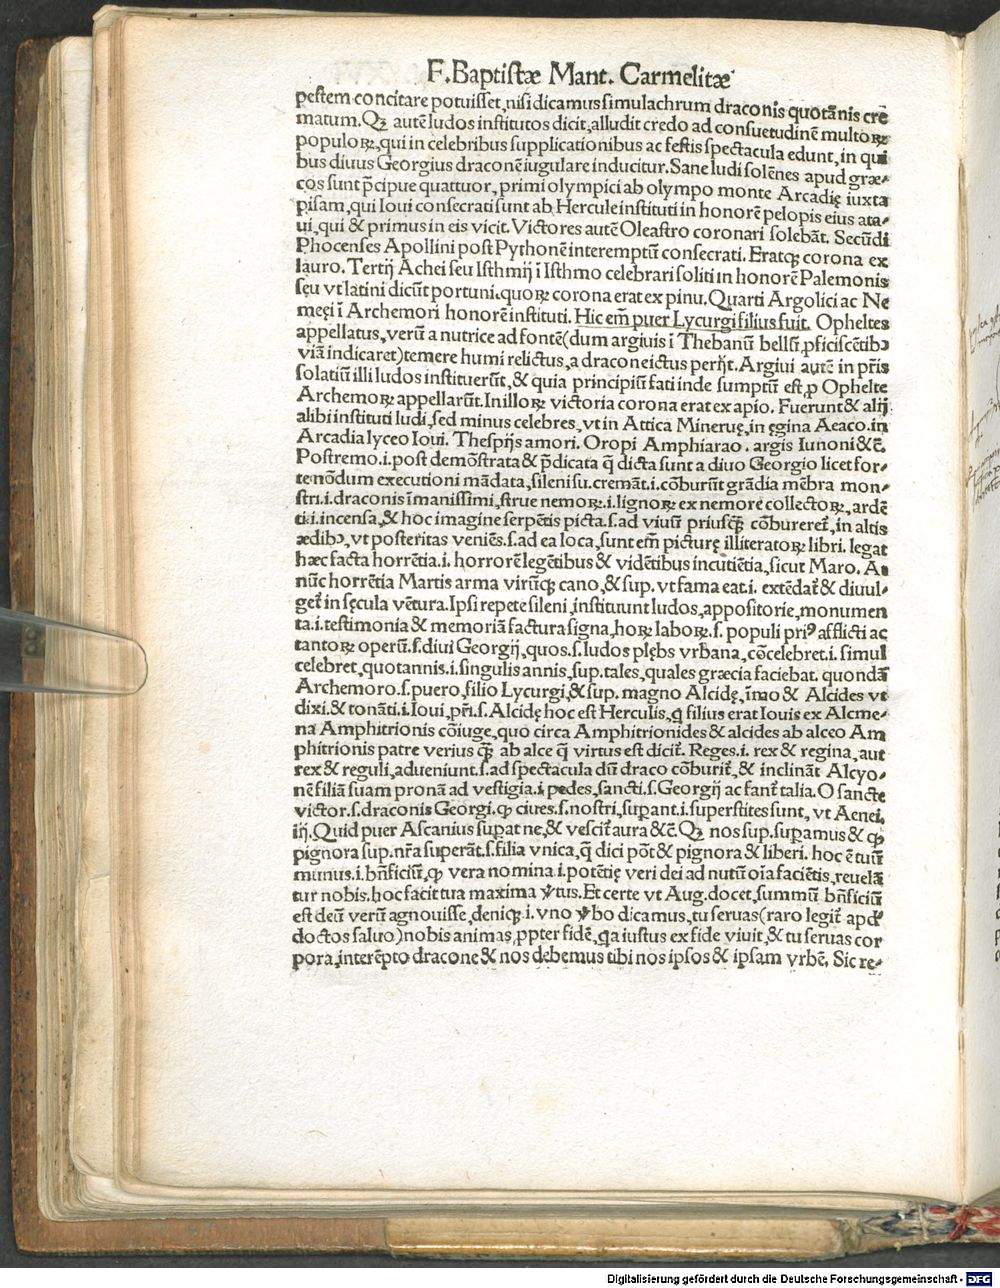 F. Baptistæ Mant. Carmelitæ
pestem concitare potuisset, nisi dicamus simulachrum draconis quotānis cre᷑
matum. Qꝫ autē ludos institutos dicit, alludit credo ad consuetudinē multoꝝ
populoꝝ, qui in celebribus supplicationibus ac festis spectacula edunt, in qui
bus diuus Georgius draconē iugulare inducitur. Sane ludi solēnes apud græ-
cos sunt p̄cipue quattuor, primi olympici ab olympo monte Arcadię iuxta
pisam, qui Ioui consecrati sunt ab Hercule instituti in honorē pelopis eius ata-
ui, qui & primus in eis vicit. Victores autē Oleastro coronari solebāt. Secūdi
Phocenses Apollini post Pythonē interemptū consecrati. Eratqꝫ corona ex
lauro. Tertij Achei seu Isthmij ī Isthmo celebrari soliti in honorē Palemonis
seu vt latini dicūt portuni. quoꝝ corona erat ex pinu. Quarti Argolici ac Ne
meęi ī Archemori honorē instituti. Hic em̄ puer Lycurgi filius fuit. Opheltes
appellatus, verū a nutrice ad fontē (dum argiuis ī Thebanū bellū ꝓficiscētibꝰ
viā indicaret) temere humi relictus, a dracone ictus perijt. Argiui autē in pr̄is
solatiū illi ludos instituerūt, & quia principiū fati inde sumptū est, ꝓ Ophelte
Archemoꝝ appellarūt. In illoꝝ victoria corona erat ex apio. Fuerunt & alij
alibi instituti ludi, sed minus celebres, vt in Attica Mineruę, in ęgina Aeaco. in
Arcadia lyceo Ioui. Thespijs amori. Oropi Amphiarao. argis Iunoni &c̄.
Postremo .i. post demōstrata & p̄dicata q̄ dicta sunt a diuo Georgio licet for-
te nōdum executioni mādata, sileni su. cremāt .i. cōburūt grādia mēbra mon-
stri .i. draconis īmanissimi, strue nemoꝝ .i. lignoꝝ ex nemore collectoꝝ, ardē
ti .i. incensa, & hoc imagine serpētis picta .s. ad viuū priusqꝫ cōbureret᷑, in altis
ædibꝰ, vt posteritas veniēs .s. ad ea loca, sunt em̄ picturę illiteratoꝝ libri. legat
hæc facta horrētia .i. horrorē legētibus & vidētibus incutiētia, sicut Maro. At
nūc horrētia Martis arma virūqꝫ cano, & sup. vt fama eat .i. extēdat᷑ & diuul-
get᷑ in sęcula vētura. Ipsi repete sileni, instituunt ludos, appositorie, monumen
ta .i. testimonia & memoriā factura signa, hoꝝ laboꝝ .s. populi priꝰ afflicti ac
tantoꝝ operū .s. diui Georgij, quos .s. ludos plębs vrbana, cōcelebret .i. simul
celebret, quotannis .i. singulis annis, sup. tales, quales græcia faciebat. quondā
Archemoro .s. puero, filio Lycurgi, & sup. magno Alcidę, īmo & Alcides vt
dixi. & tonāti .i. Ioui, pr̄i .s. Alcidę hoc est Herculis, ꝗ filius erat Iouis ex Alcme-
na Amphitrionis cōiuge, quo circa Amphitrionides & alcides ab alceo Am
phitrionis patre verius qꝫ ab alce q̄ virtus est dicit᷑. Reges .i. rex & regina, aut
rex & reguli, adueniunt .s. ad spectacula dū draco cōburit᷑, & inclināt Alcyo-
nē filiā suam pronā ad vestigia .i. pedes, sancti .s. Georgij ac fant᷑ talia. O sancte
victor .s. draconis Georgi. ꝙ ciues .s. nostri, supant .i. superstites sunt, vt Aenei.
iij. Quid puer Ascanius supat ne, & vescit᷑ aura &c̄. Qꝫ nos sup. supamus & ꝙ
pignora sup. nr̄a superāt .s. filia vnica, q̄ dici pōt & pignora & liberi. hoc ē tuū
munus .i. bn̄ficiū, ꝙ vera nomina .i. potētię veri dei ad nutū oīa faciētis, reuelā
tur nobis. hoc facit tua maxima v̓tus. Et certe vt Aug. docet, summū bn̄ficiū
est deū verū agnouisse, deniqꝫ .i. vno v̓bo dicamus, tu seruas (raro legit᷑ apd᷑
doctos saluo) nobis animas, ꝓpter fidē, ꝗa iustus ex fide viuit, & tu seruas cor
pora, interēpto dracone & nos debemus tibi nos ipsos & ipsam vrbē. Sic re-
Digitalisierung gefördert durch die Deutsche Forschungsgemeinschaft - DFG